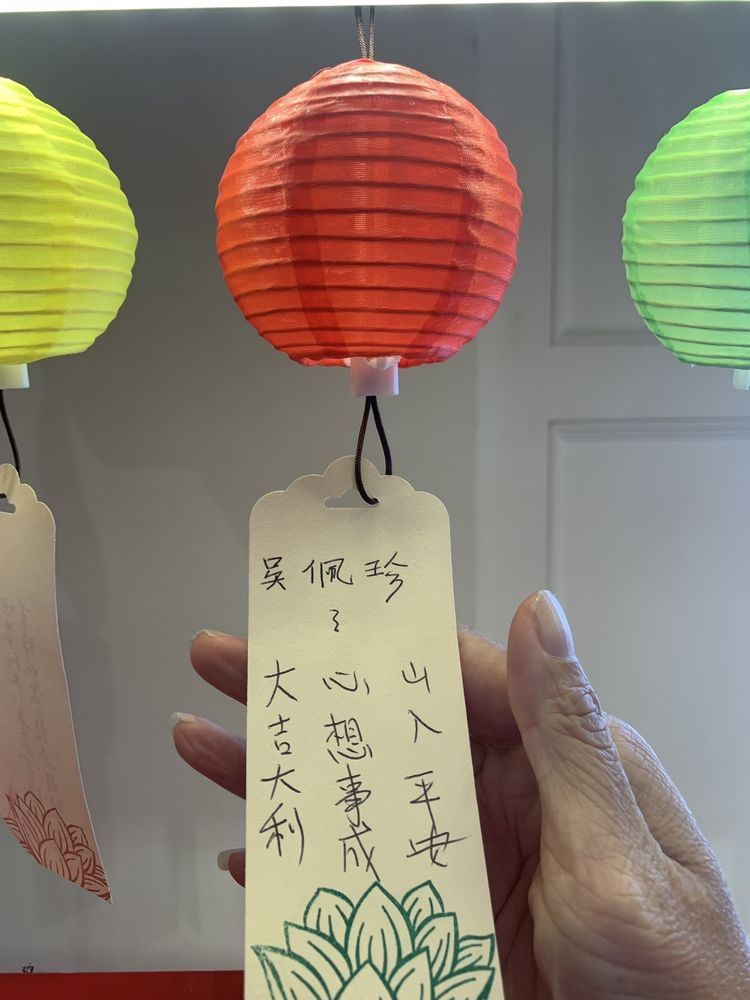 吴佩珍
山入平安
心想事成
大吉大利